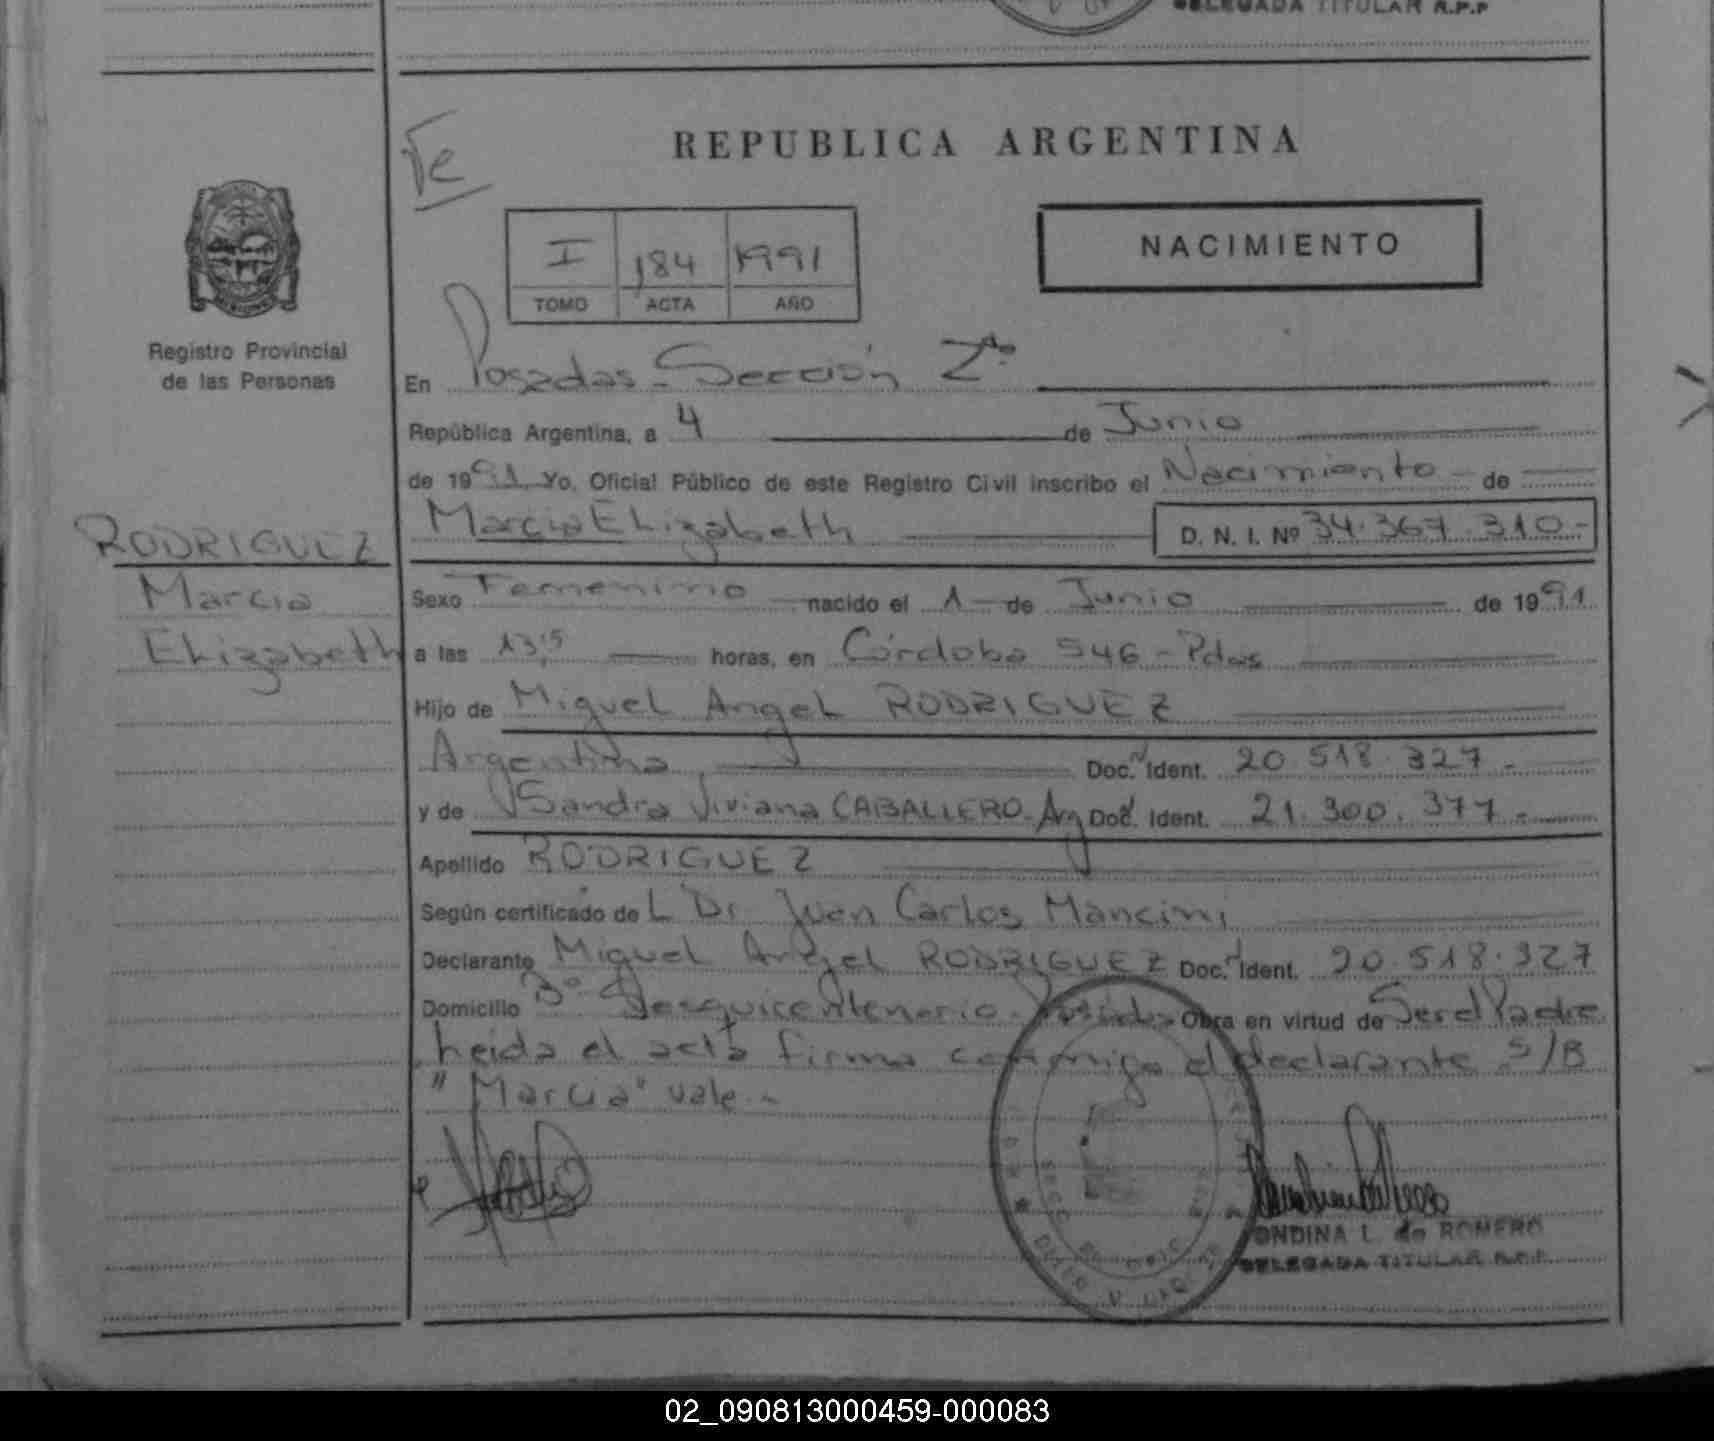 DELEGADA TITULAR R.P.P
REPUBLICA ARGENTINA
NACIMIENTO
I 184 1991
TOMO ACTA AÑO
Registro Provincial
de las Personas
En Posadas - Sección 2da
República Argentina, a 4 de Junio
de 1991 Yo, Oficial Público de este Registro Civil inscribo el Nacimiento - de
Marcia Elizabeth D. N. I. Nº 34.367.310.-
RODRIGUEZ
Marcia
Elizabeth
Sexo Femenino nacido el 1 de Junio de 1991
a las 13,15 horas, en Córdoba 546 - Pdas
Hijo de Miguel Angel RODRIGUEZ
Argentina, Doc. N Ident. 20.518.327.-
y de Sandra Viviana CABALLERO - Arg Doc. Ident. 21.300.377.-
Apellido RODRIGUEZ
Según certificado de L Dr Juan Carlos Mancini
Declarante Miguel Angel RODRIGUEZ Doc. Ident. 20.518.327
Domicilio Bº Sesquicentenario - Posadas Obra en virtud de Ser el Padre
leida el acta firma conmigo el declarante S/B
"Marcia" vale -
ONDINA L. de ROMERO
DELEGADA TITULAR R.P.P.
02_090813000459-000083